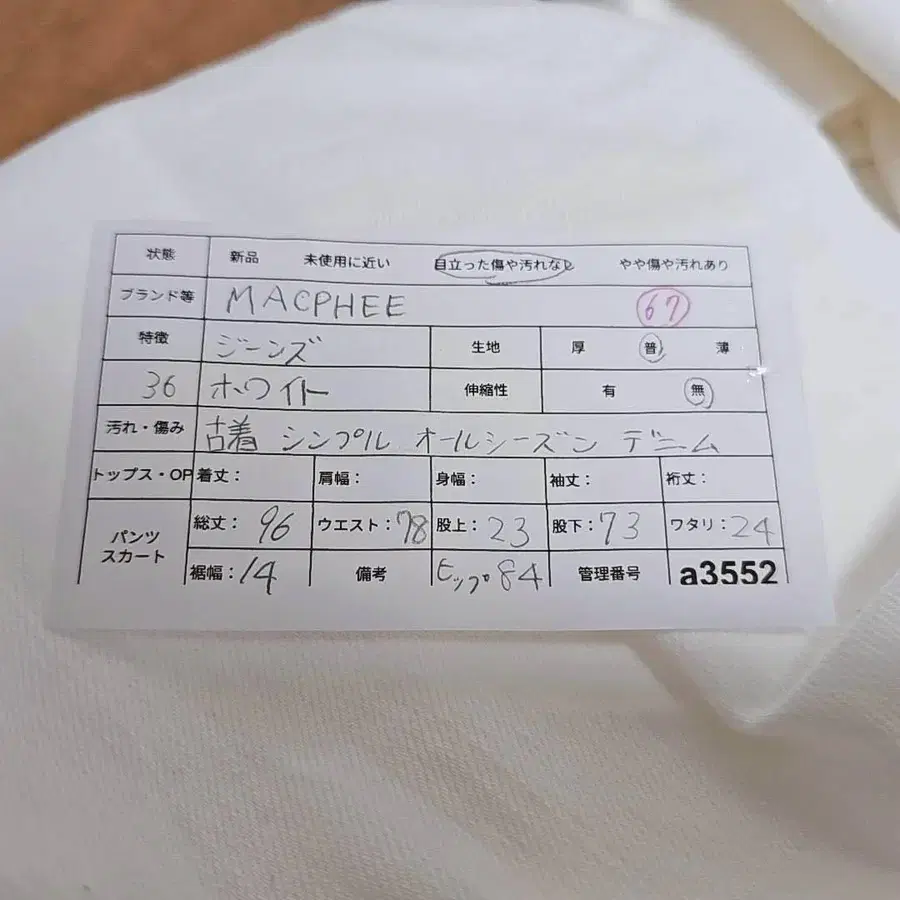 状態 新品 未使用に近い 目立った傷や汚れなし やや傷や汚れあり
ブランド等 MACPHEE 67
特徴 ジーンズ 生地 厚 普 薄
36 ホワイト 伸縮性 有 無
汚れ・傷み 古着 シンプル オールシーズン デニム
トップス・OP 着丈: 肩幅: 身幅: 袖丈: 裄丈:
パンツ スカート 総丈: 96 ウエスト: 78 股上: 23 股下: 73 ワタリ: 24
裾幅: 14 備考 ヒップ84 管理番号 a3552